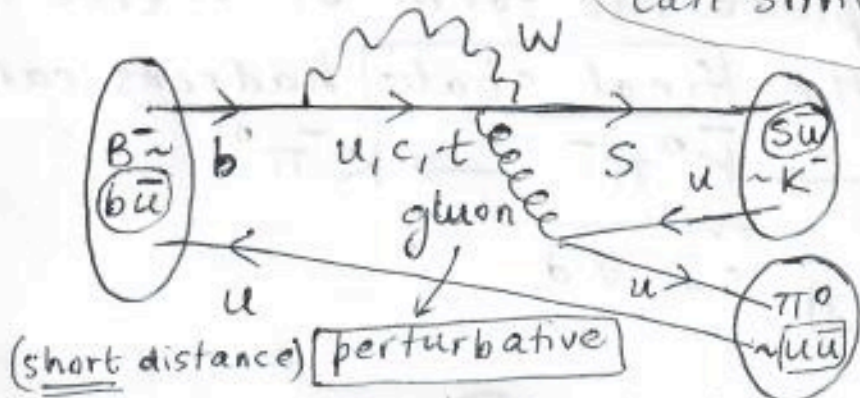 can
W
B⁻ ~
b
u, c, t
S
s ū
~ K⁻
b ū
gluon
u
u
u
π⁰
~ u ū
(short distance) perturbative